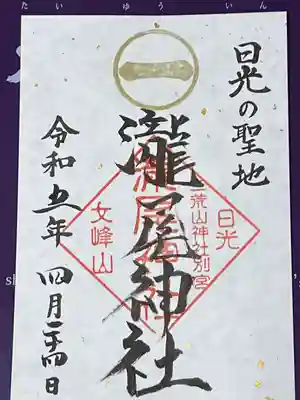 たいゆういん
一
日光の聖地
日光
荒山神社別宮
瀧尾神社
女峰山
令和五年 四月二十四日